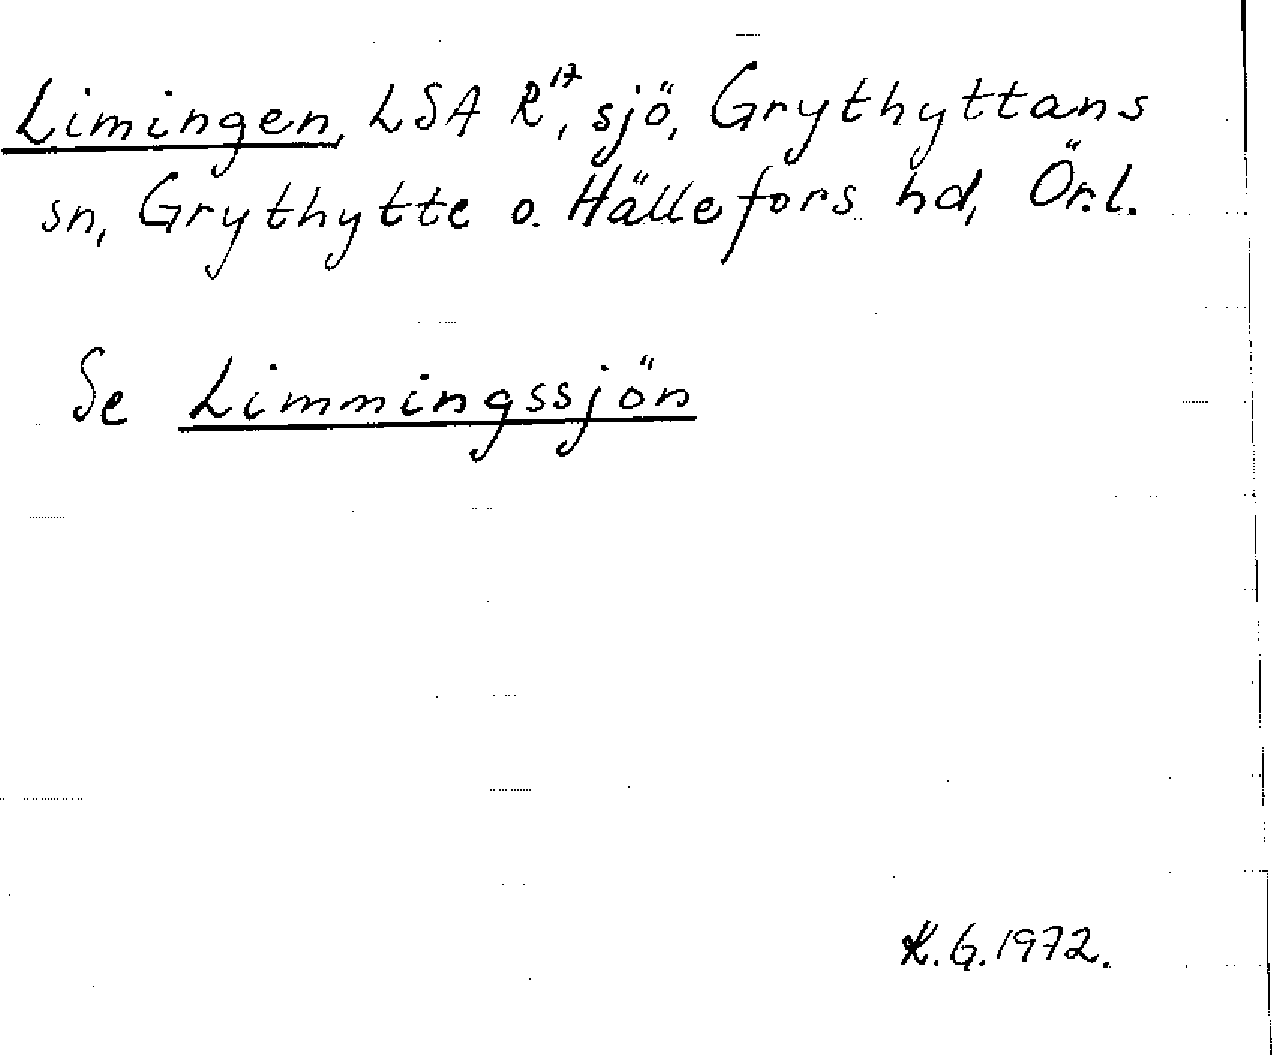 Limingen, LSA R¹⁷, sjö, Grythyttans
sn, Grythytte o. Hällefors hd, Ör.l.
Se Limmingssjön
K.G.1972.